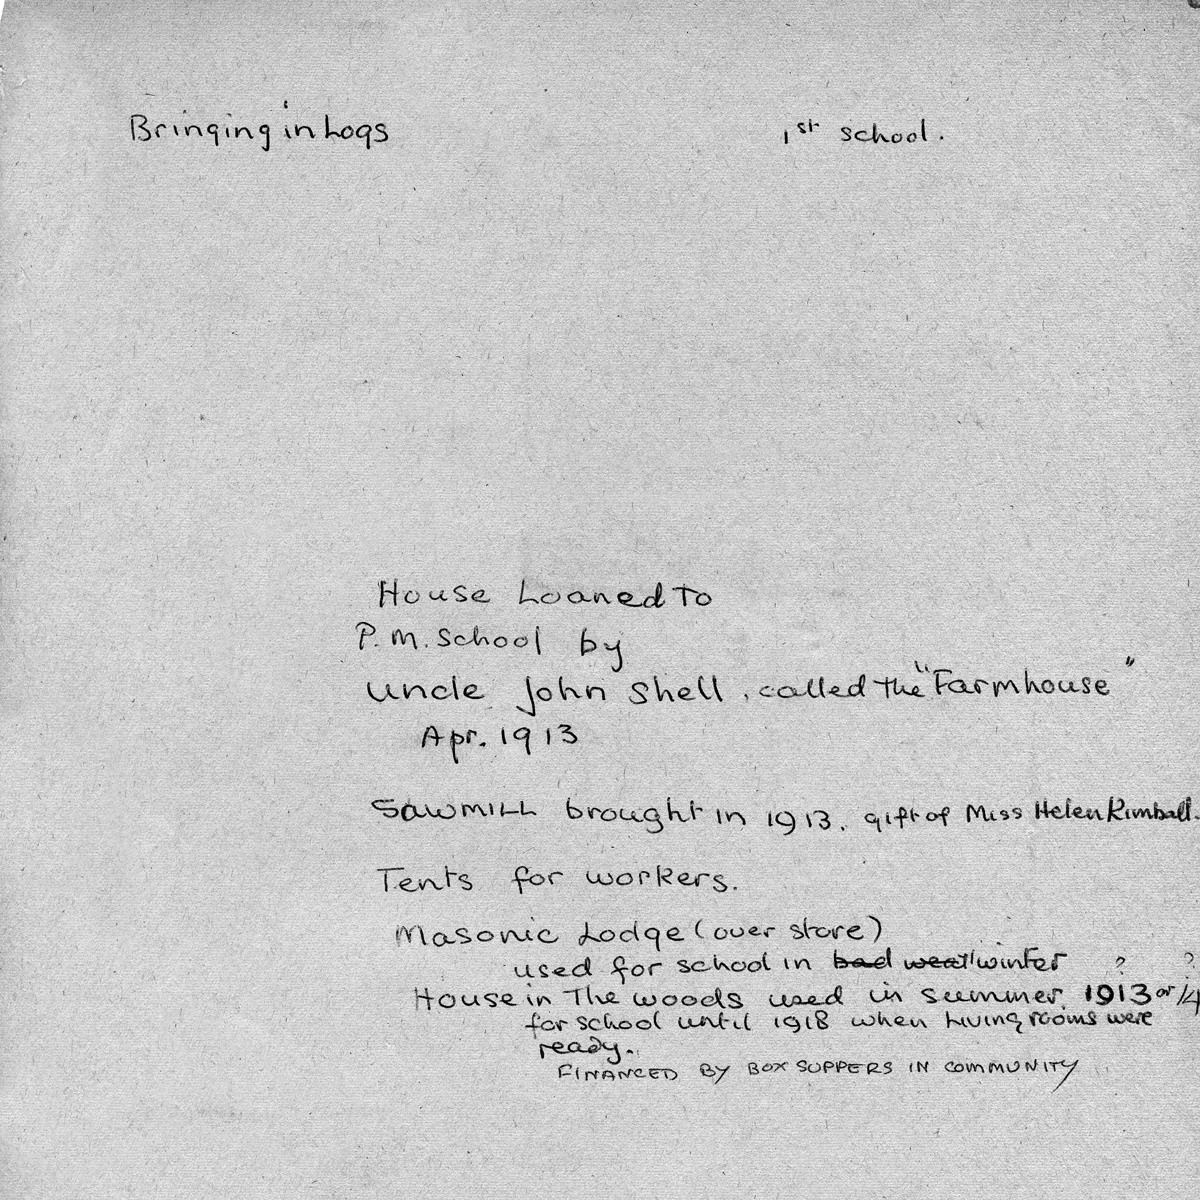 Bringing in Logs
1st school.
House Loaned To
P.M. School by
Uncle John Shell, called the "Farmhouse"
Apr. 1913
SAWMILL brought in 1913. gift of Miss Helen Kimball.
Tents for workers.
Masonic Lodge (over store)
used for school in bad weat winter ? ?
House in The woods used in summer 1913 or 14
for school until 1918 when Living rooms were
ready.
FINANCED BY BOX SUPPERS IN COMMUNITY